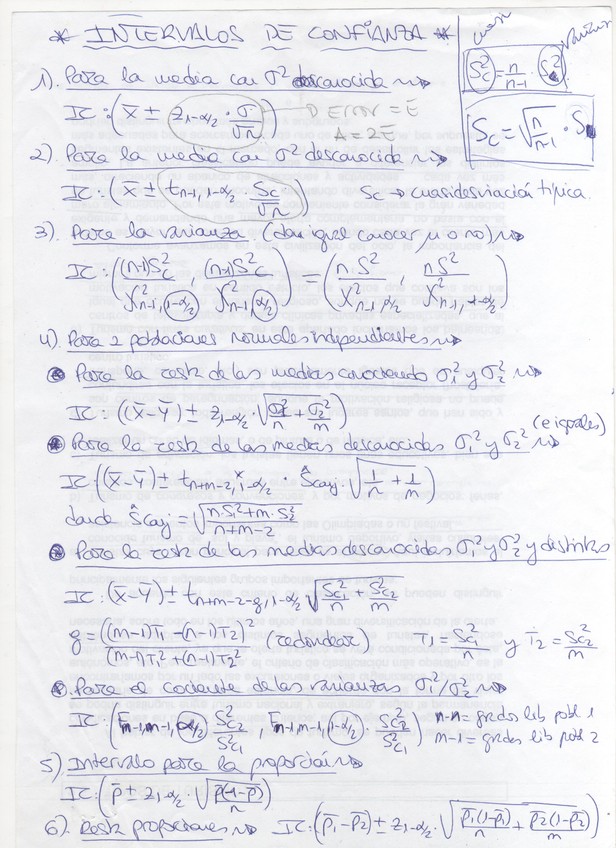 * INTERVALOS DE CONFIANZA *
cuasi
Sc² = n/(n-1) · S²
Sc = √(n/(n-1)) · S
1). Para la media con σ² desconocida ⇝
IC: (x̄ ± z1-α/2 · σ/√n)
D. Error = E
A = 2E
2). Para la media con σ² desconocida ⇝
IC: (x̄ ± tn-1, 1-α/2 · Sc/√n) Sc → cuasidesviación típica.
3). Para la varianza (dan igual conocer μ o no) ⇝
IC: ((n-1)Sc²/χ²n-1, 1-α/2 , (n-1)Sc²/χ²n-1, α/2) = (n·S²/χ²n-1, α/2 , nS²/χ²n-1, 1-α/2)
4). Para 2 poblaciones normales independientes ⇝
Para la resta de las medias conociendo σ1² y σ2² ⇝
IC: ((x̄-ȳ) ± z1-α/2 · √(σ1²/n + σ2²/m))
Para la resta de las medias desconocidas σ1² y σ2² (e iguales) ⇝
IC: ((x̄-ȳ) ± tn+m-2, 1-α/2 · Ŝcuj · √(1/n + 1/m))
donde Ŝcuj = √((n·S1²+m·S2²)/(n+m-2))
Para la resta de las medias desconocidas σ1² y σ2² y distintas
IC: (x̄-ȳ) ± tn+m-2-g, 1-α/2 √(Sc1²/n + Sc2²/m)
g = ((m-1)T1 - (n-1)T2)²/((m-1)T1² + (n-1)T2²) (redondear) T1 = Sc1²/n y T2 = Sc2²/m
Para el cociente de las varianzas σ1²/σ2² ⇝
IC: (Fn-1, m-1, α/2 · Sc2²/Sc1² , Fn-1, m-1, 1-α/2 · Sc2²/Sc1²) n-1 = grados lib pobl 1
m-1 = grados lib pobl 2
5) Intervalo para la proporción ⇝
IC: (p̄ ± z1-α/2 · √(p̄(1-p̄)/n))
6). Resta proporciones ⇝ IC: (p̄1-p̄2) ± z1-α/2 · √(p̄1(1-p̄1)/n + p̄2(1-p̄2)/m)